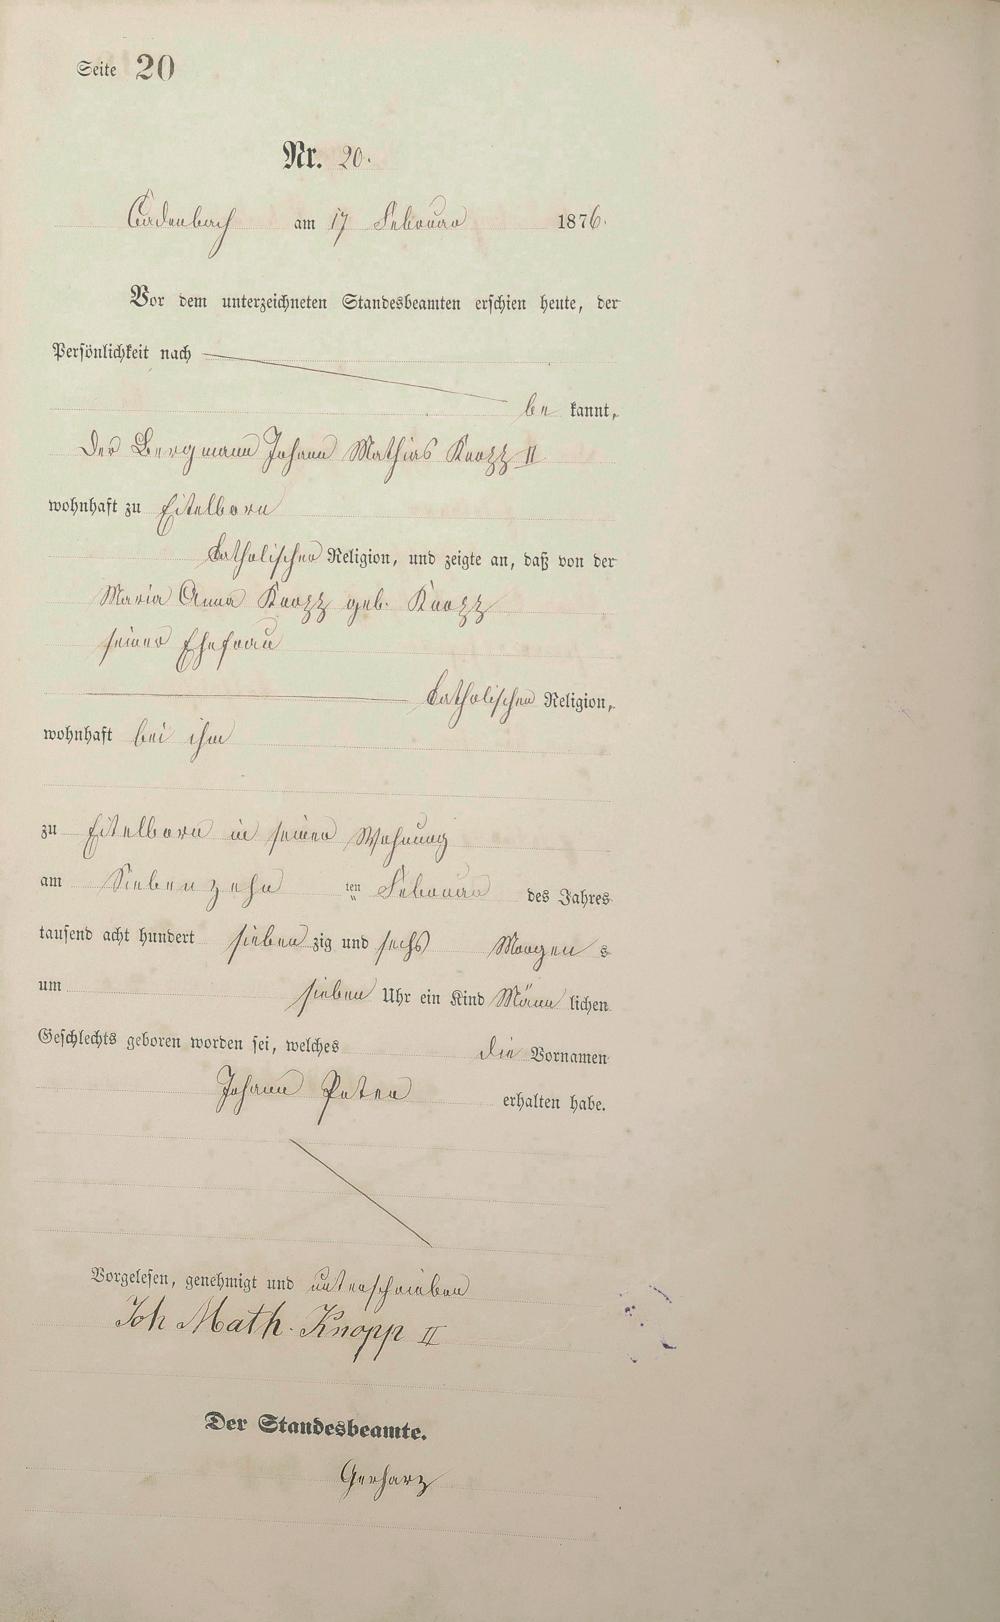 Seite 20
Nr. 20.
Cadenbach am 17 Februar 1876.
Vor dem unterzeichneten Standesbeamten erschien heute, der
Persönlichkeit nach
be kannt,
der Bergmann Johann Mathias Knopp II
wohnhaft zu Eitelborn
katholischer Religion, und zeigte an, daß von der
Maria Anna Knopp geb. Knopp
seiner Ehefrau
katholischer Religion,
wohnhaft bei ihm
zu Eitelborn in seiner Wohnung
am Siebenzehn ten Februar des Jahres
tausend acht hundert sieben zig und sechs Morgen s
um sieben Uhr ein Kind Männ lichen
Geschlechts geboren worden sei, welches die Vornamen
Johann Peter erhalten habe.
Vorgelesen, genehmigt und unterschrieben
Joh Math. Knopp II
Der Standesbeamte.
Gerharz